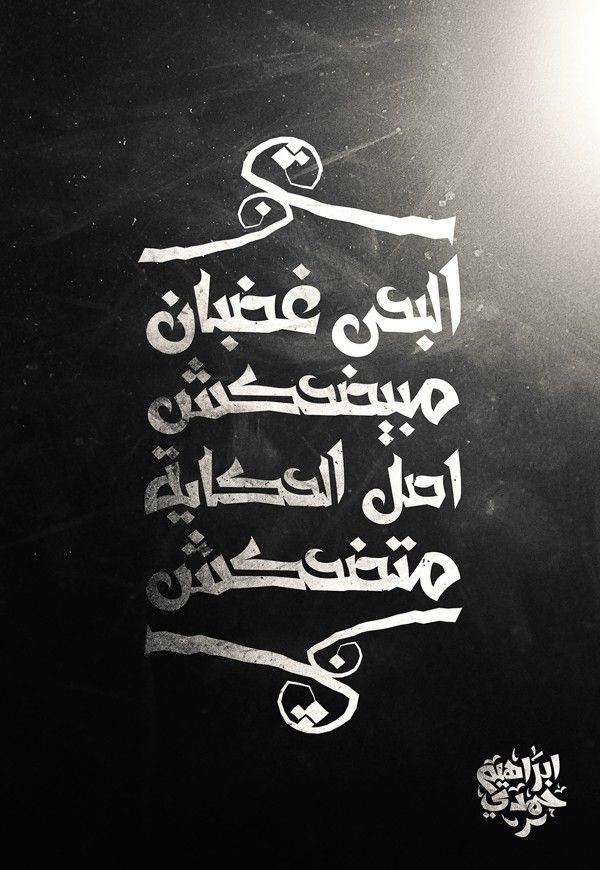 البحر غضبان
مبيضحكش
اصل الحكاية
متضحكش
ابراهيم
حمدي